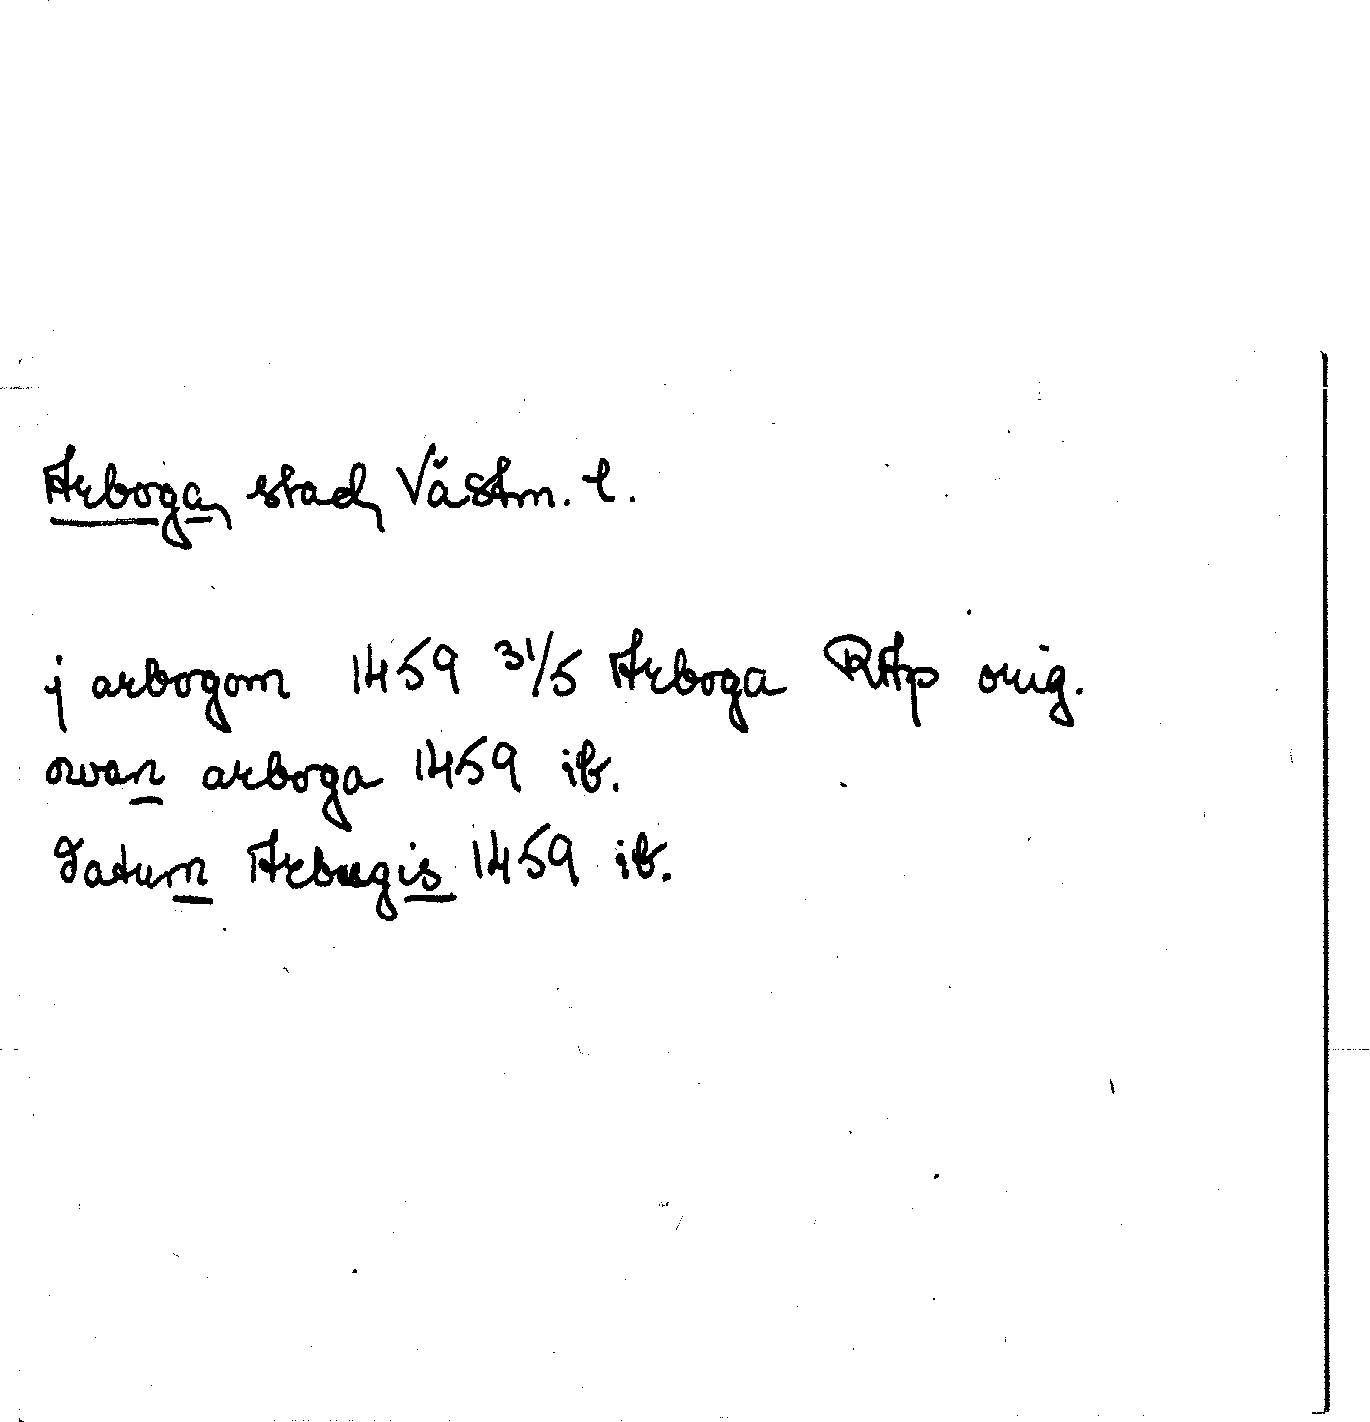 Arboga, stad, Västm. l.
j arbogom 1459 31/5 Arboga RAp orig.
owan arboga 1459 ib.
Datum Arbugis 1459 ib.